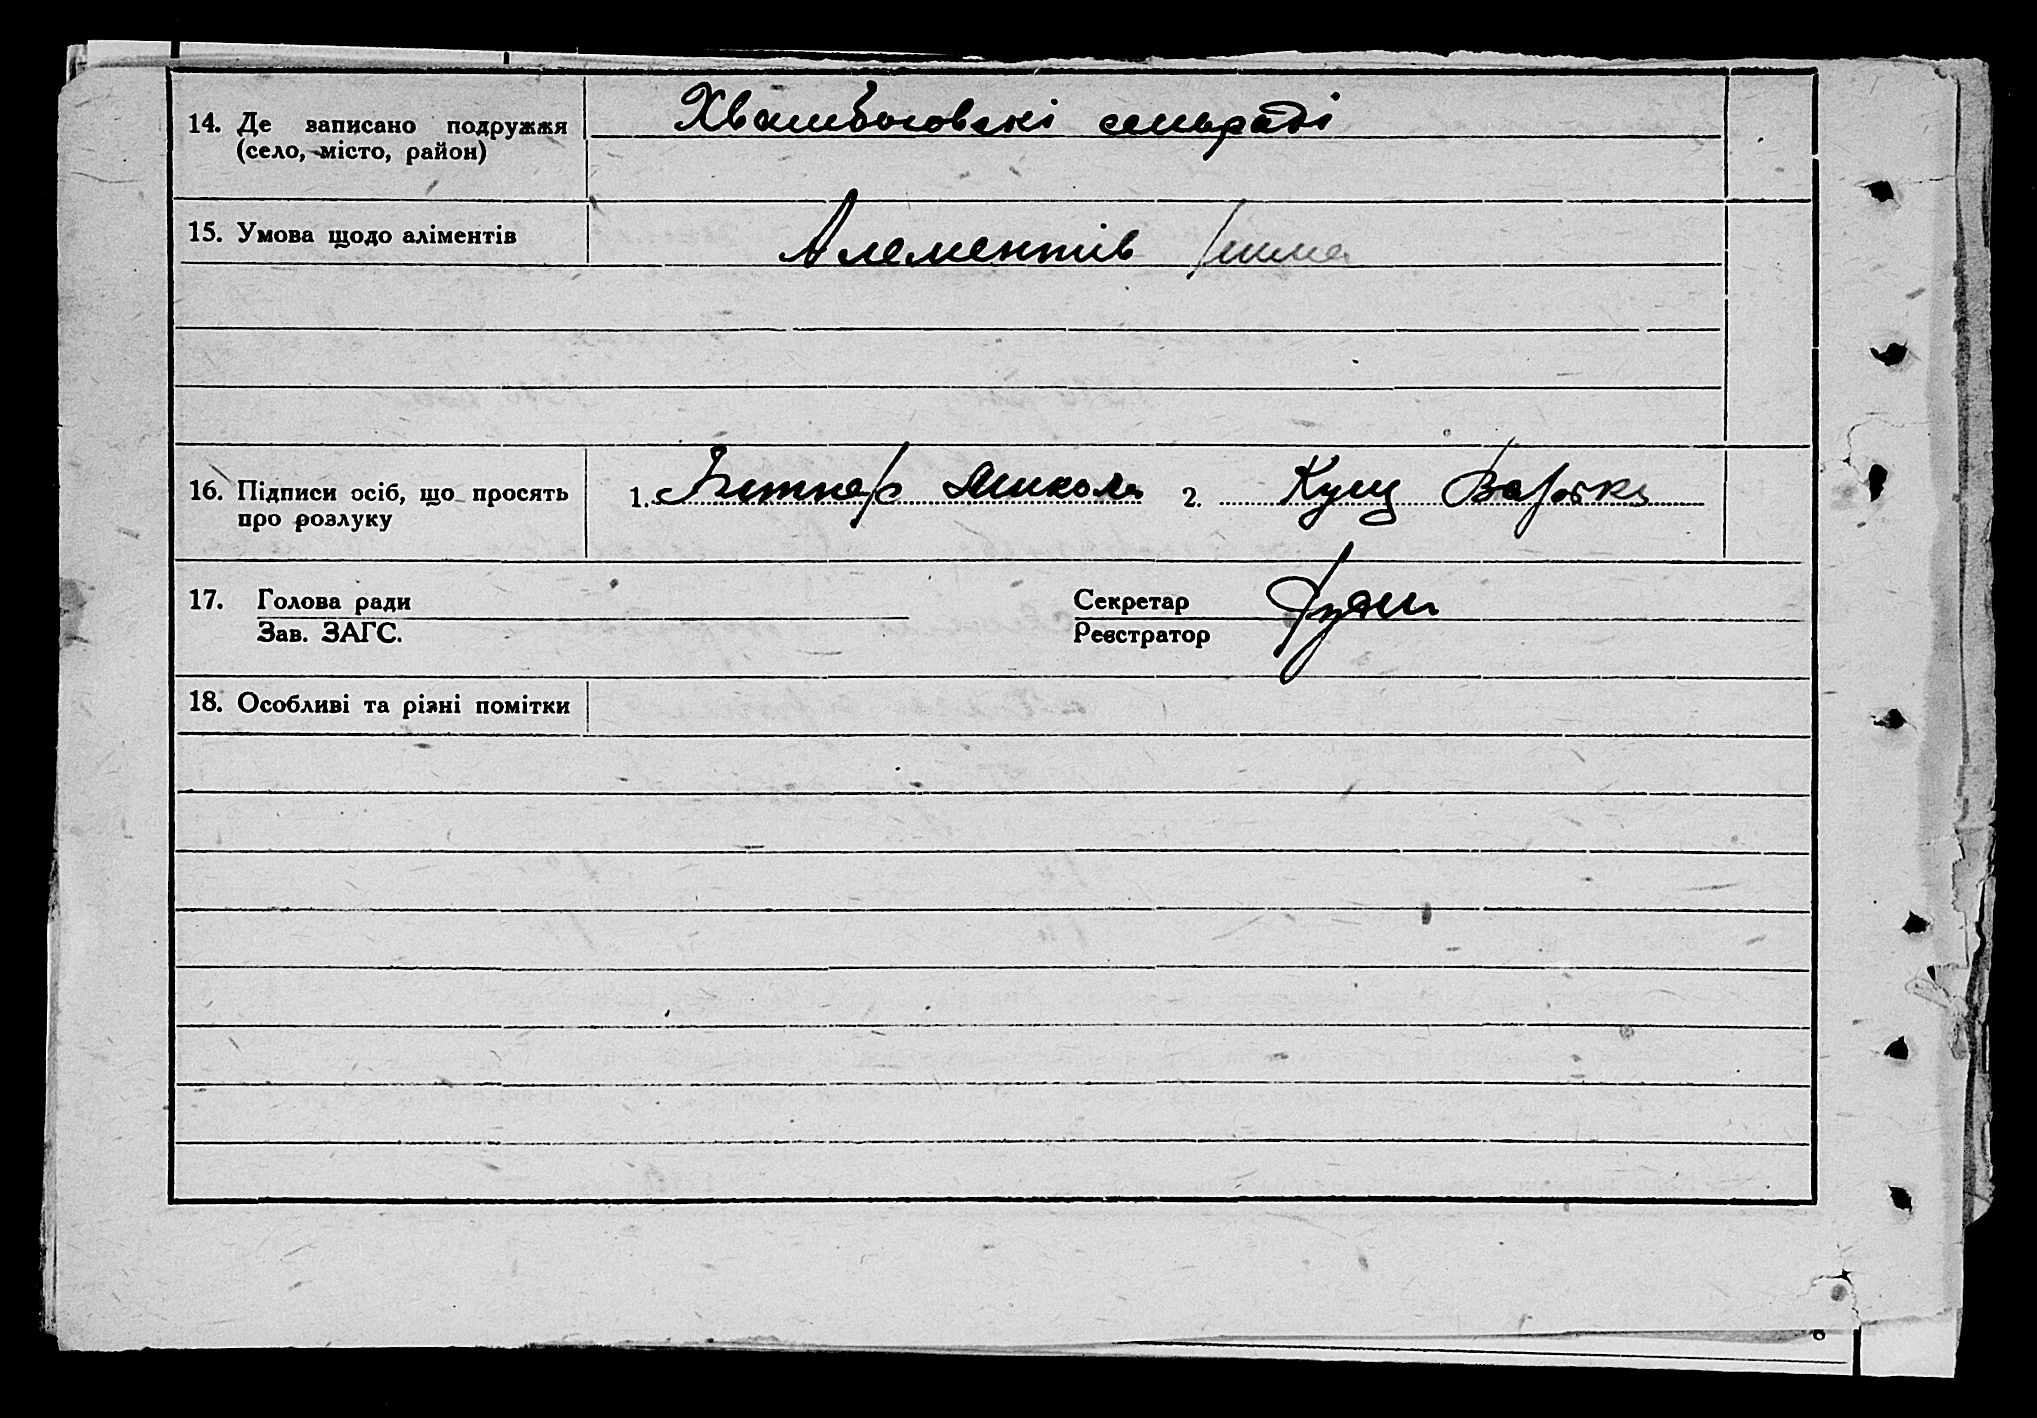 14. Де записано подружжя
(село, місто, район)
сельраді
15. Умова щодо аліментів
Алементів
16. Підписи осіб, що просять
про розлуку
1. Микола 2. Кущ Варька
17. Голова ради
Зав. ЗАГС.
Секретар
Реєстратор
18. Особливі та різні помітки